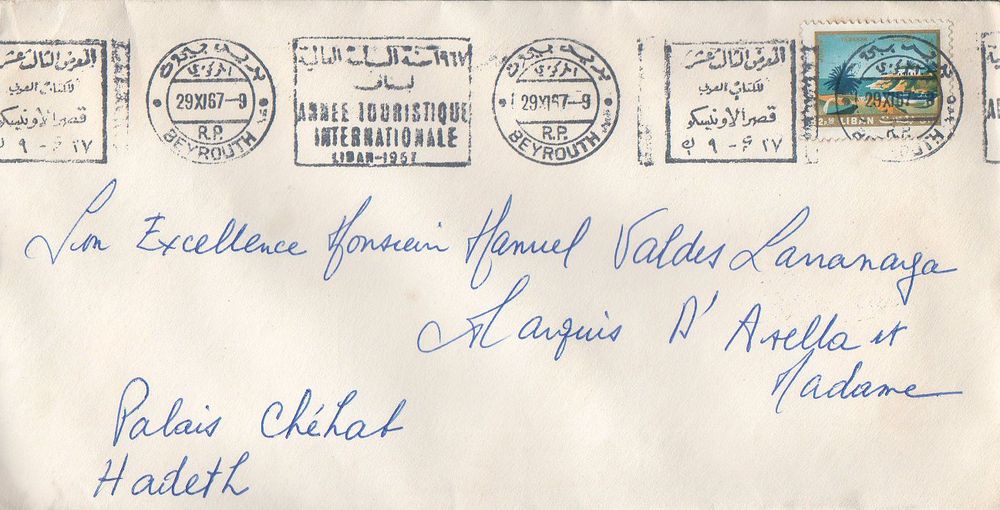 المعرض الثالث عشر
للكتاب العربي
قصر الأونيسكو
٢٧ - ٩
بريد بيروت
المركزي
29XI67-9
R.P.
BEYROUTH
١٩٦٧ سنة السياحة العالمية
لبنان
ANNEE TOURISTIQUE
INTERNATIONALE
LIBAN-1967
بريد بيروت
المركزي
29XI67-9
R.P.
BEYROUTH
المعرض الثالث عشر
للكتاب العربي
قصر الأونيسكو
٢٧ - ٩
29XI67
LIBAN
Son Excellence Monsieur Manuel Valdes Larranaga
Marquis D' Avella et
Madame
Palais Chéhab
Hadeth